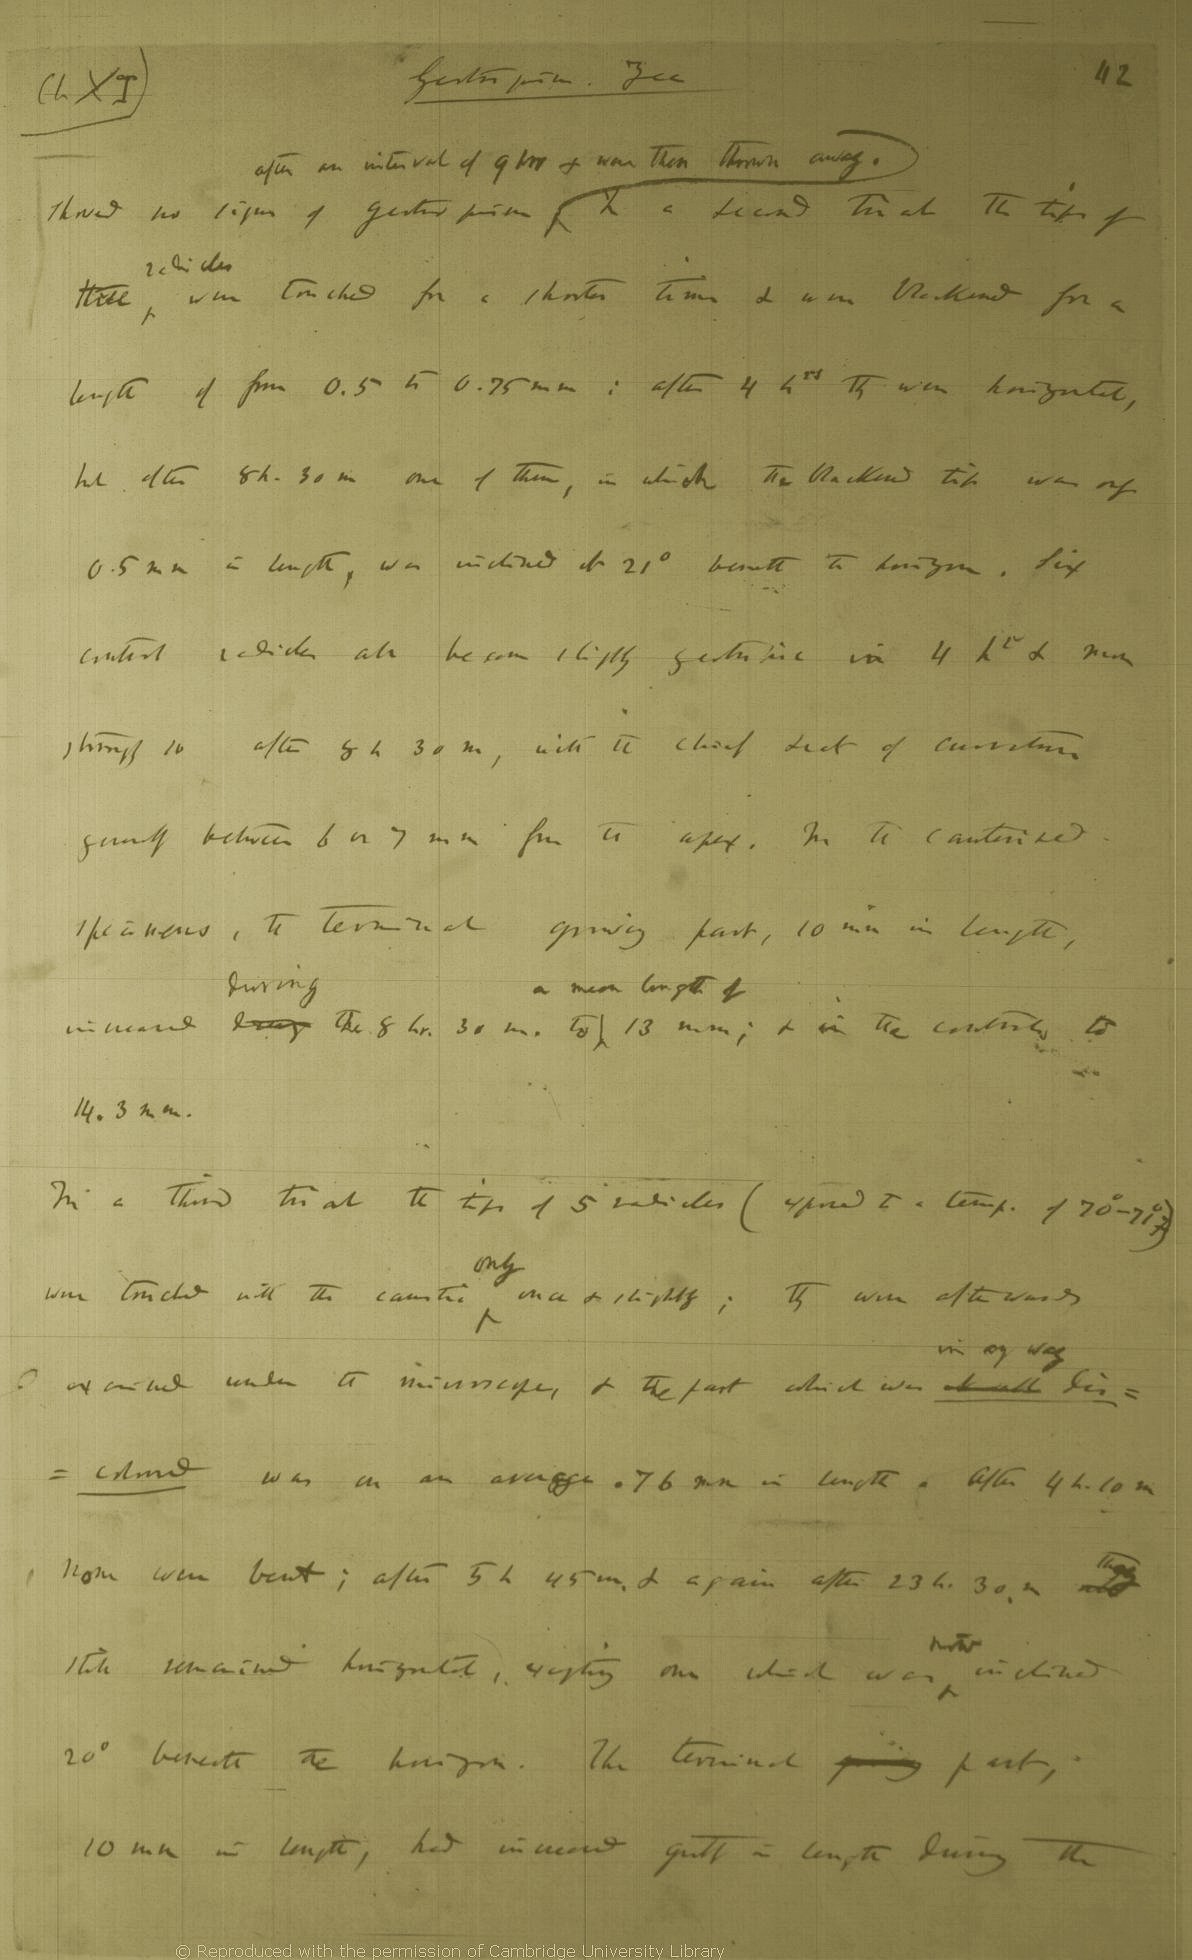 (Ch XI)
Geotropism. Zea
42
after an interval of 9 hrs & were then thrown away.
showed no signs of geotropism; In a second trial the tips of
three radicles were touched for a shorter time & were blackened for a
length of from 0.5 to 0.75 mm; after 4 hrs they were horizontal,
but after 8h. 30m one of them, in which the blackened tip was only
0.5 mm in length, was inclined at 21° beneath the horizon. Six
control radicles all became slightly geotropic in 4 hrs & more
strongly so after 8h 30m, with the chief seat of curvature
generally between 6 or 7 mm from the apex. In the cauterised
specimens, the terminal growing part, 10 mm in length,
during a mean length of
increased the 8 hr. 30 m. to 13 mm; & in the controls to
14.3 mm.
In a third trial the tips of 5 radicles (exposed to a temp. of 70°-71° F)
only
were touched with the caustic once & slightly; they were afterwards
in any way
examined under the microscope, & the part which was at all dis=
=coloured was on an average .76 mm in length. After 4h. 10m
none were bent; after 5h 45m. & again after 23h. 30.m they
still remained horizontal, excepting one which was now inclined
20° beneath the horizon. The terminal growing part,
10 mm in length, had increased greatly in length during the
© Reproduced with the permission of Cambridge University Library